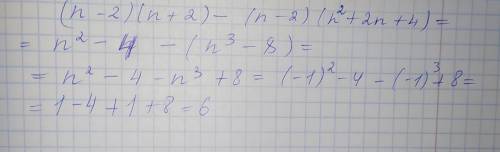 (n-2)(n+2) - (n-2)(n²+2n+4) =
= n² - 4 - (n³ - 8) =
= n² - 4 - n³ + 8 = (-1)² - 4 - (-1)³ + 8 =
= 1 - 4 + 1 + 8 = 6